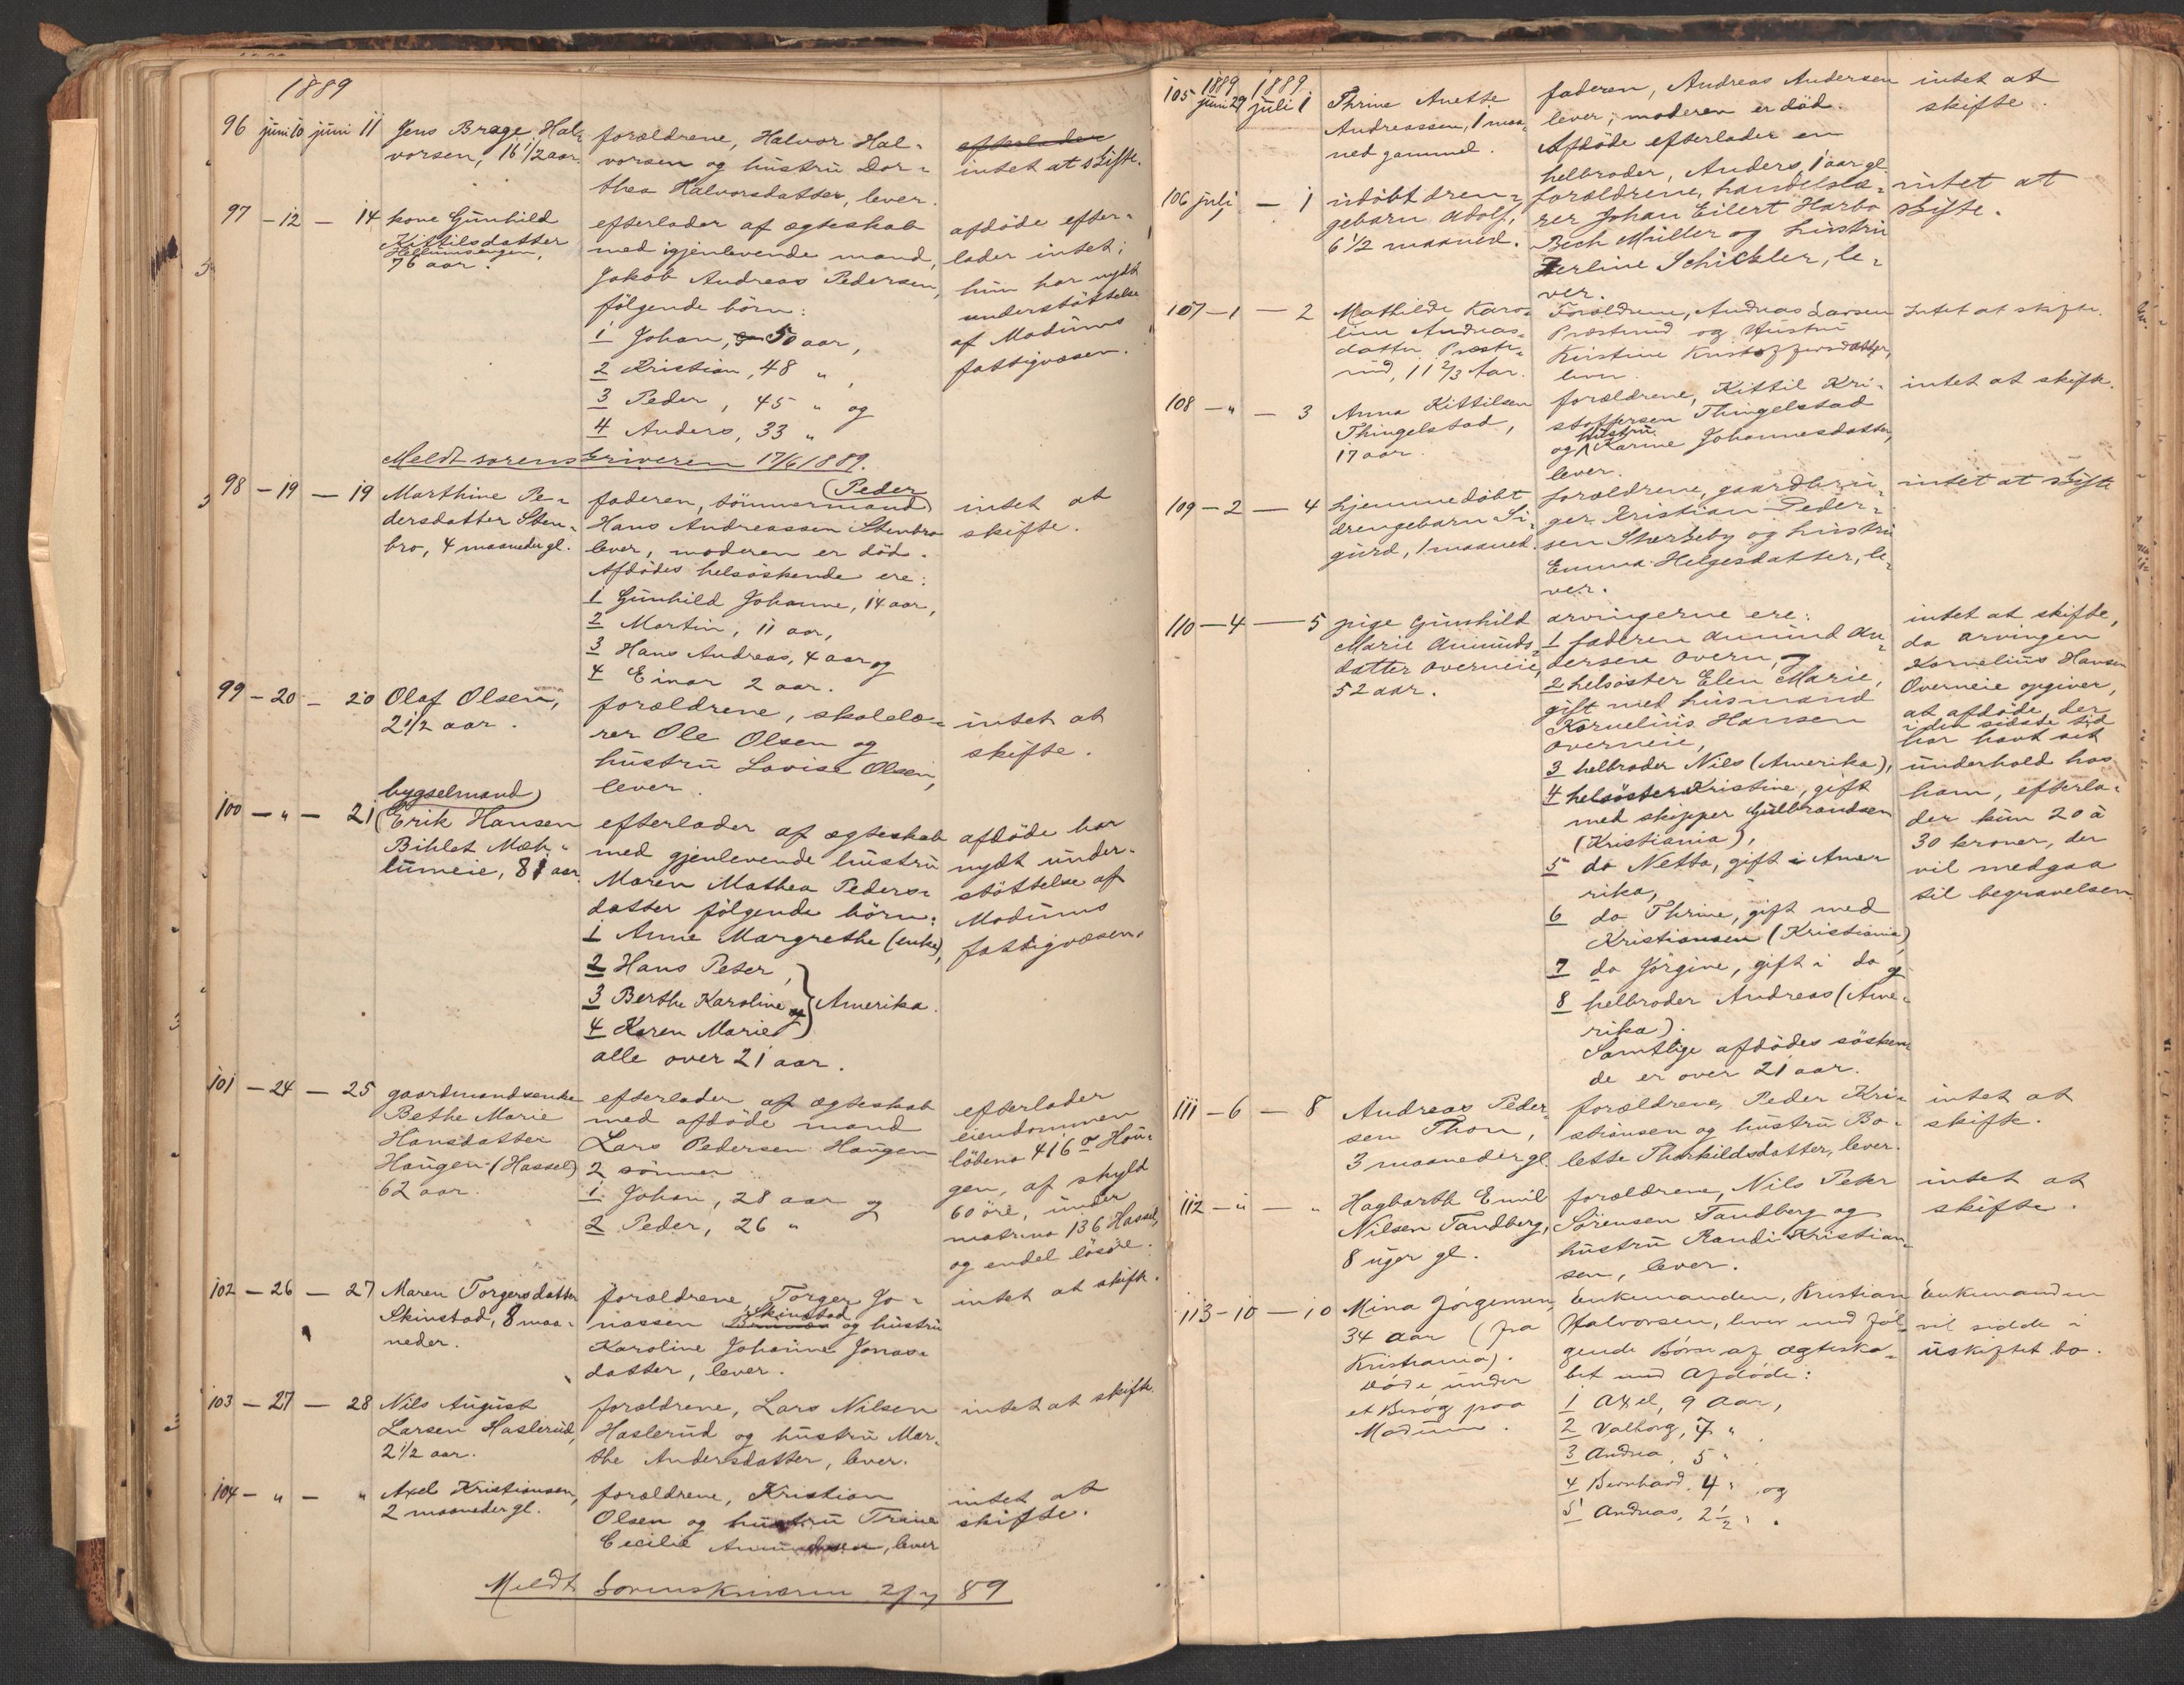 1889
96 juni 10 juni 11 Jens Brage Hal-
vorsen, 16 1/2 aar.
forældrene, Halvor Hal-
vorsen og hustru Dor-
thea Halvorsdatter, lever.
efterlader
intet at skifte.
97 - 12 - 14 kone Gunhild
Kittilsdatter
76 aar.
efterlader af ægteskab
med igjenlevende mand,
Jakob Andreas Pedersen,
følgende børn:
1 Johan, 50 aar,
2 Kristian, 48 " ,
3 Peder, 45 " og
4 Anders, 33 "
afdøde efter-
lader intet;
hun har nydt
understøttelse
af Modums
fattigvæsen.
Meldt sorenskriveren 17/6 1889.
98 - 19 - 19 Marthine Pe-
dersdatter Sten-
bro, 4 maaneder gl.
faderen, tømmermand (Peder
Hans Andreassen Stenbro
lever, moderen er død.
Afdødes helsøskende ere:
1 Gunhild Johanne, 14 aar,
2 Martin, 11 aar,
3 Hans Andreas, 4 aar og
4 Einar 2 aar.
intet at
skifte.
99 - 20 - 20 Olaf Olsen,
2 1/2 aar.
forældrene, skolelæ-
rer Ole Olsen og
hustru Lovise Olsen,
lever.
intet at
skifte.
bygselmand
100 - " - 21 Erik Hansen
Bihlet Mæh-
lumeie, 81 aar.
efterlader af ægteskab
med gjenlevende hustru
Maren Mathea Peders-
datter følgende børn:
1 Anne Margrethe (enke),
2 Hans Peter,
3 Berthe Karoline og
4 Karen Marie
Amerika.
alle over 21 aar.
afdøde har
nydt under-
støttelse af
Modums
fattigvæsen.
101 - 24 - 25 gaardmandsenke
Bethe Marie
Hansdatter
Haugen (Hassel)
62 aar.
efterlader af ægteskab
med afdøde mand
Lars Pedersen Haugen
2 sønner
1 Johan, 28 aar og
2 Peder, 26 "
efterlader
eiendommen
løbeno 416 a Hau-
gen, af skyld
60 øre, under
matr.no 136 Hassel,
og endel løsøre.
102 - 26 - 27 Maren Torgersdatter
Skinstad, 8 maa-
neder.
forældrene, Torger Jo-
nassen Skinstad og hustru
Karoline Johanne Jonas-
datter, lever.
intet at skifte.
103 - 27 - 28 Nils August
Larsen Haslerud,
2 1/2 aar.
forældrene, Lars Nilsen
Haslerud og hustru Mar-
the Andersdatter, lever.
intet at skifte.
104 - " - " Axel Kristiansen,
2 maaneder gl.
forældrene, Kristian
Olsen og hustru Trine
Cecilie Amundsen, lever
intet at
skifte.
Meldt Sorenskriveren 2/7 89
1889 1889
105 juni 29 juli 1 Thrine Anette
Andreassen, 1 maa-
ned gammel.
faderen, Andreas Andersen
lever, moderen er død.
Afdøde efterlader en
helbroder, Anders 1 aar gl.
intet at
skifte.
106 juli 1 - 1 udøbt dren-
gebarn Adolf,
6 1/2 maaned.
forældrene, handelslæ-
rer Johan Eilert Harbo
Bech Müller og hustru
Zerline Schickler, le-
ver.
intet at
skifte.
107 - 1 - 2 Mathilde Karo-
line Andreas-
datter Præste-
rud, 11 2/3 Aar.
Forældrene, Andreas Larsen
Præsterud og Hustru
Kirstine Kristoffersdatter,
lever.
Intet at skifte.
108 - " - 3 Anna Kittilsen
Thingelstad,
17 aar.
forældrene, Kittil Kri-
stoffersen Thingelstad
og hustru Karine Johannesdatter,
lever.
intet at skifte.
109 - 2 - 4 hjemmedøbt
drengebarn Si-
gurd, 1 maaned.
forældrene, gaardbru-
ger Kristian Peder-
sen Skærteby og hustru
Emma Helgesdatter, le-
ver.
intet at skifte
110 - 4 - 5 pige Gunhild
Marie Amunds-
datter Overneie,
52 aar.
arvingerne ere:
1 faderen Amund An-
dersen Overn, og
2 helsøster Elen Marie,
gift med husmand
Kornelius Hansen
Overneie,
3 helbroder Nils (Amerika),
4 helsøster Kristine, gift
med skipper Gulbrandsen
(Kristiania),
5 do Netta, gift i Ame-
rika,
6 do Thrine, gift med
Kristiansen (Kristiania)
7 do Jørgine, gift i do og
8 helbroder Andreas (Ame-
rika).
Samtlige afdødes søsken-
de er over 21 aar.
intet at skifte,
da arvingen
Kornelius Hansen
Overneie opgiver,
at afdøde, der
i den sidste tid
har havt sit
underhold hos
ham, efterla-
der kun 20 à
30 kroner, der
vil medgaa
til begravelsen.
111 - 6 - 8 Andreas Peder-
sen Thon,
3 maaneder gl.
forældrene, Peder Kri-
stiansen og hustru Bo-
lette Thorkildsdatter, lever.
intet at
skifte.
112 - " - " Hagbarth Emil
Nilsen Tandberg,
8 uger gl.
forældrene, Nils Peter
Sørensen Tandberg og
hustru Randi Kristian-
sen, lever.
intet at
skifte.
113 - 10 - 10 Mina Jørgensen,
34 aar (fra
Kristiania).
Døde under
et Besøg paa
Modum.
Enkemanden, Kristian
Halvorsen, lever med føl-
gende Børn af Ægteska-
bet med Afdøde:
1 Axel, 9 Aar,
2 Valborg, 7 "
3 Andrea, 5 "
4 Bernhard, 4 " og
5 Andreas, 2 1/2 " .
Enkemanden
vil sidde i
uskiftet bo.